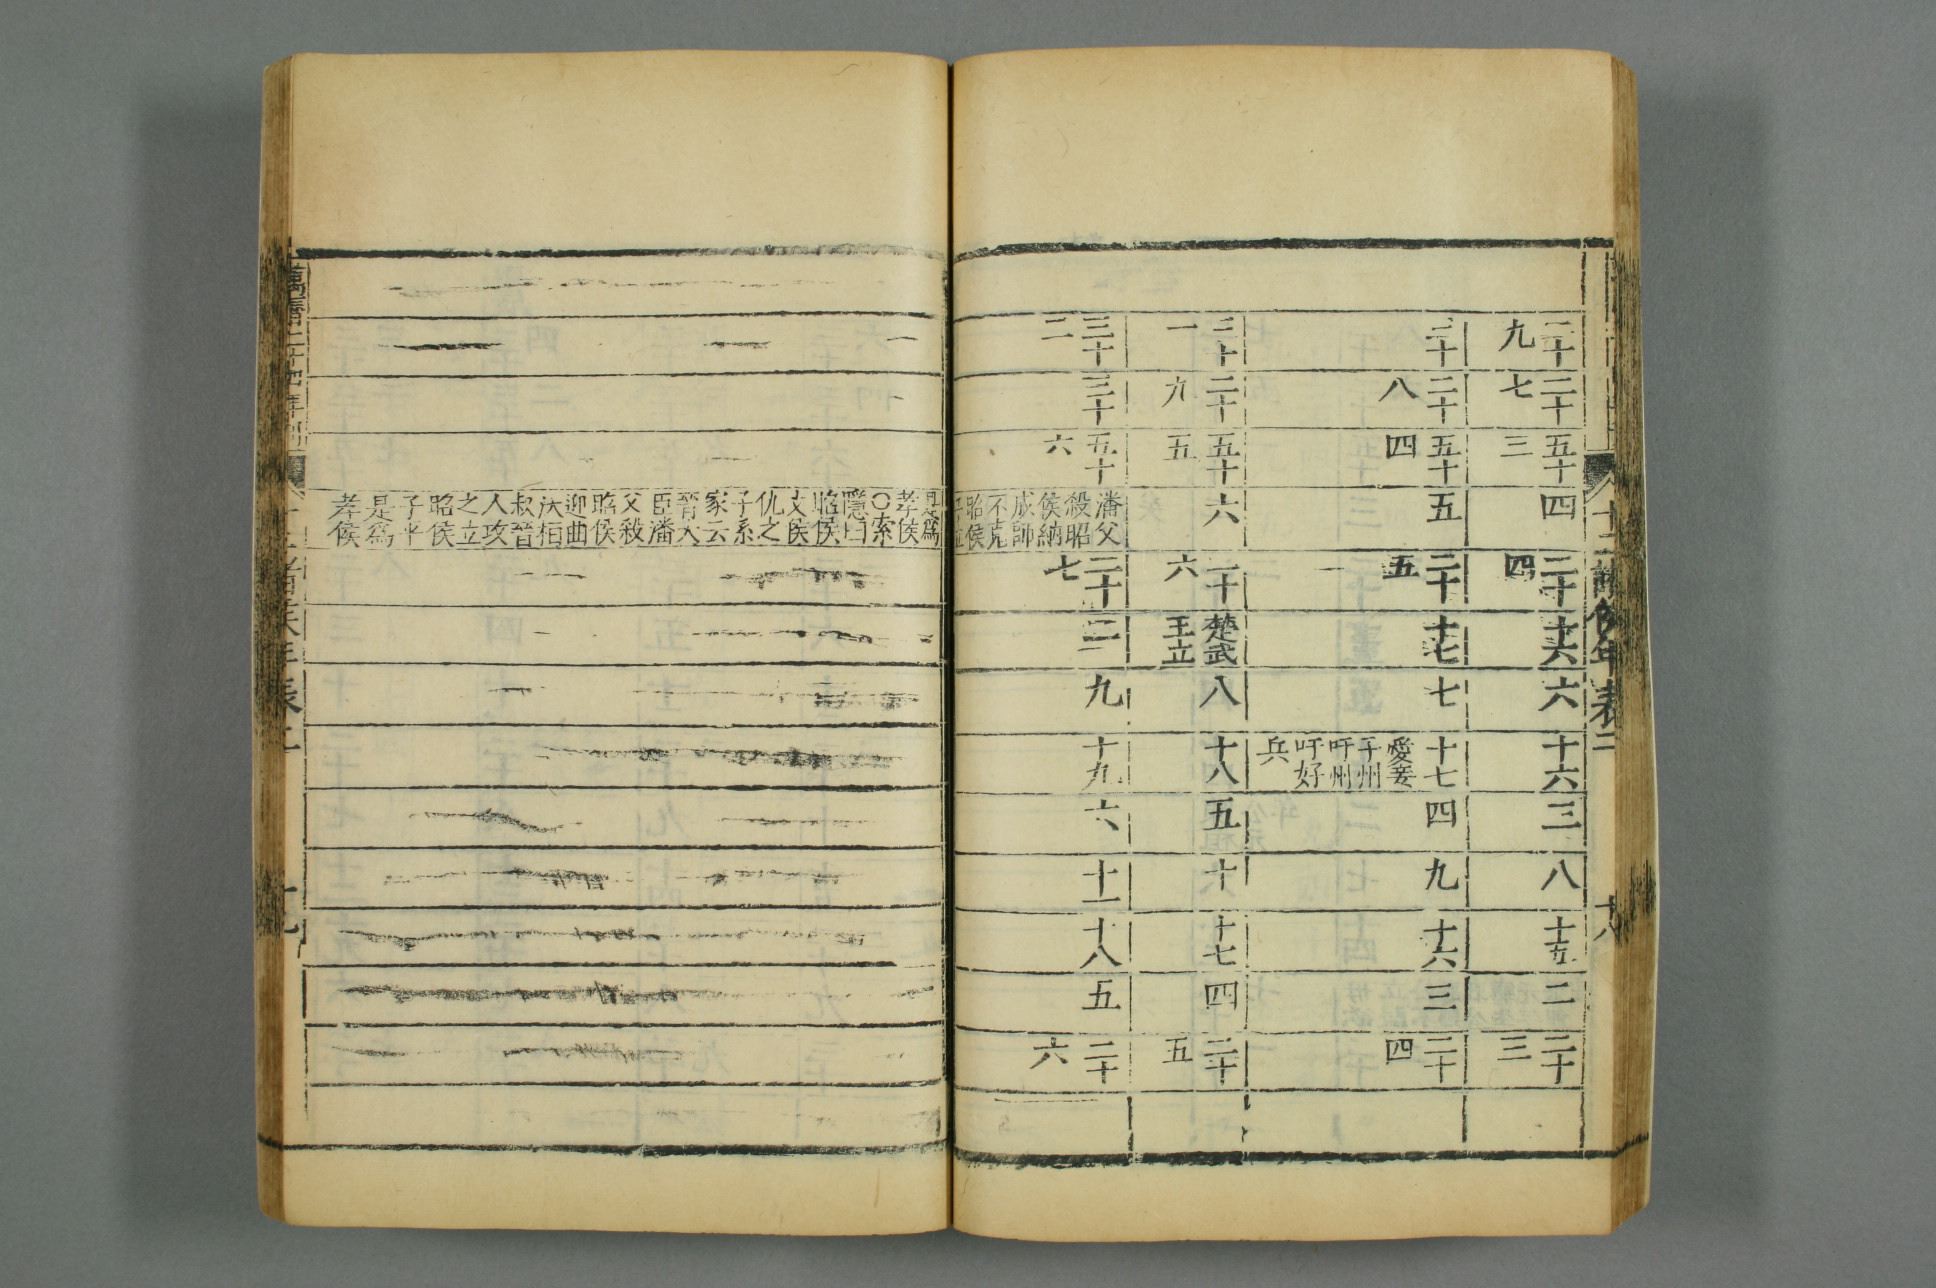 十二諸侯年表二
十八
二十九
二十七
五十三
四
二十四
十六
六
十六
三
八
十五
二
二十三
三十
二十八
五十四
五
二十五
十七
七
十七
愛妾
子州
吁州
吁好
兵
四
九
十六
三
二十四
三十一
二十九
五十五
六
二十六
楚武王立
八
十八
五
十
十七
四
二十五
三十二
三十
五十六
潘父
殺昭
侯納
成師
不克
昭侯
子立
是爲
孝侯
○索
隱曰
昭侯
文侯
仇之
子系
家云
晉大
臣潘
父殺
昭侯
迎曲
沃桓
叔晉
人攻
之立
昭侯
子平
是爲
孝侯
二十七
二
九
十九
六
十一
十八
五
二十六
萬曆二十四年刊
十二諸侯年表二
十九